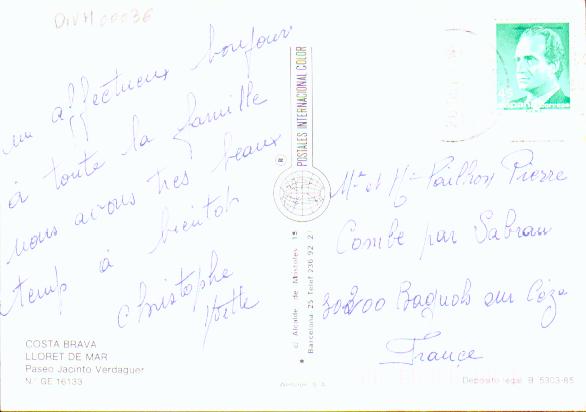 DIVM00036
un affectueux bonjour
à toute la famille
nous avons tres beaux
temp à bientôt
Christophe
Yvette
COSTA BRAVA
LLORET DE MAR
Paseo Jacinto Verdaguer
N.º GE 16133
POSTALES INTERNACIONAL COLOR
c/ Alcalde de Móstoles 15
Barcelona-25 Telef 236 92 2
Mr et Mme Pailhon Pierre
Combe par Sabran
30200 Bagnols sur Cèze
France
Depósito legal B 5303-85